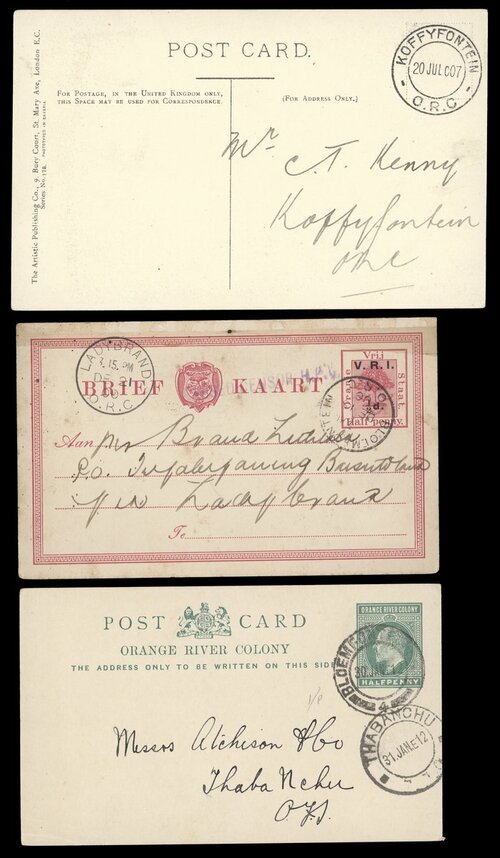 POST CARD.
FOR POSTAGE, IN THE UNITED KINGDOM ONLY,
THIS SPACE MAY BE USED FOR CORRESPONDENCE.
(FOR ADDRESS ONLY.)
The Artistic Publishing Co., 9, Bury Court, St. Mary Axe, London E.C.
Series No. 178. PHOTOTYPED IN BAVARIA
KOFFYFONTEIN
20 JUL 07
O.R.C.
Mr
C. T. Kenny
Koffyfontein
ORC
LADYBRAND
3.15. PM
DE 21
00
O.R.C
BRIEF KAART
Vrij
V.R.I.
Oranje
Staat
½d.
Half penny.
BLOEMFONTEIN
Aan Mr Brand
P.O.
Ladybrand
To
POST CARD
ORANGE RIVER COLONY
THE ADDRESS ONLY TO BE WRITTEN ON THIS SIDE
ORANGE RIVER COLONY
HALFPENNY
BLOEMFON
30 JAN
4
THABANCHU
31 JAN.E 12
1/-
Messrs Atchison & Co
Thaba Nchu
OFS